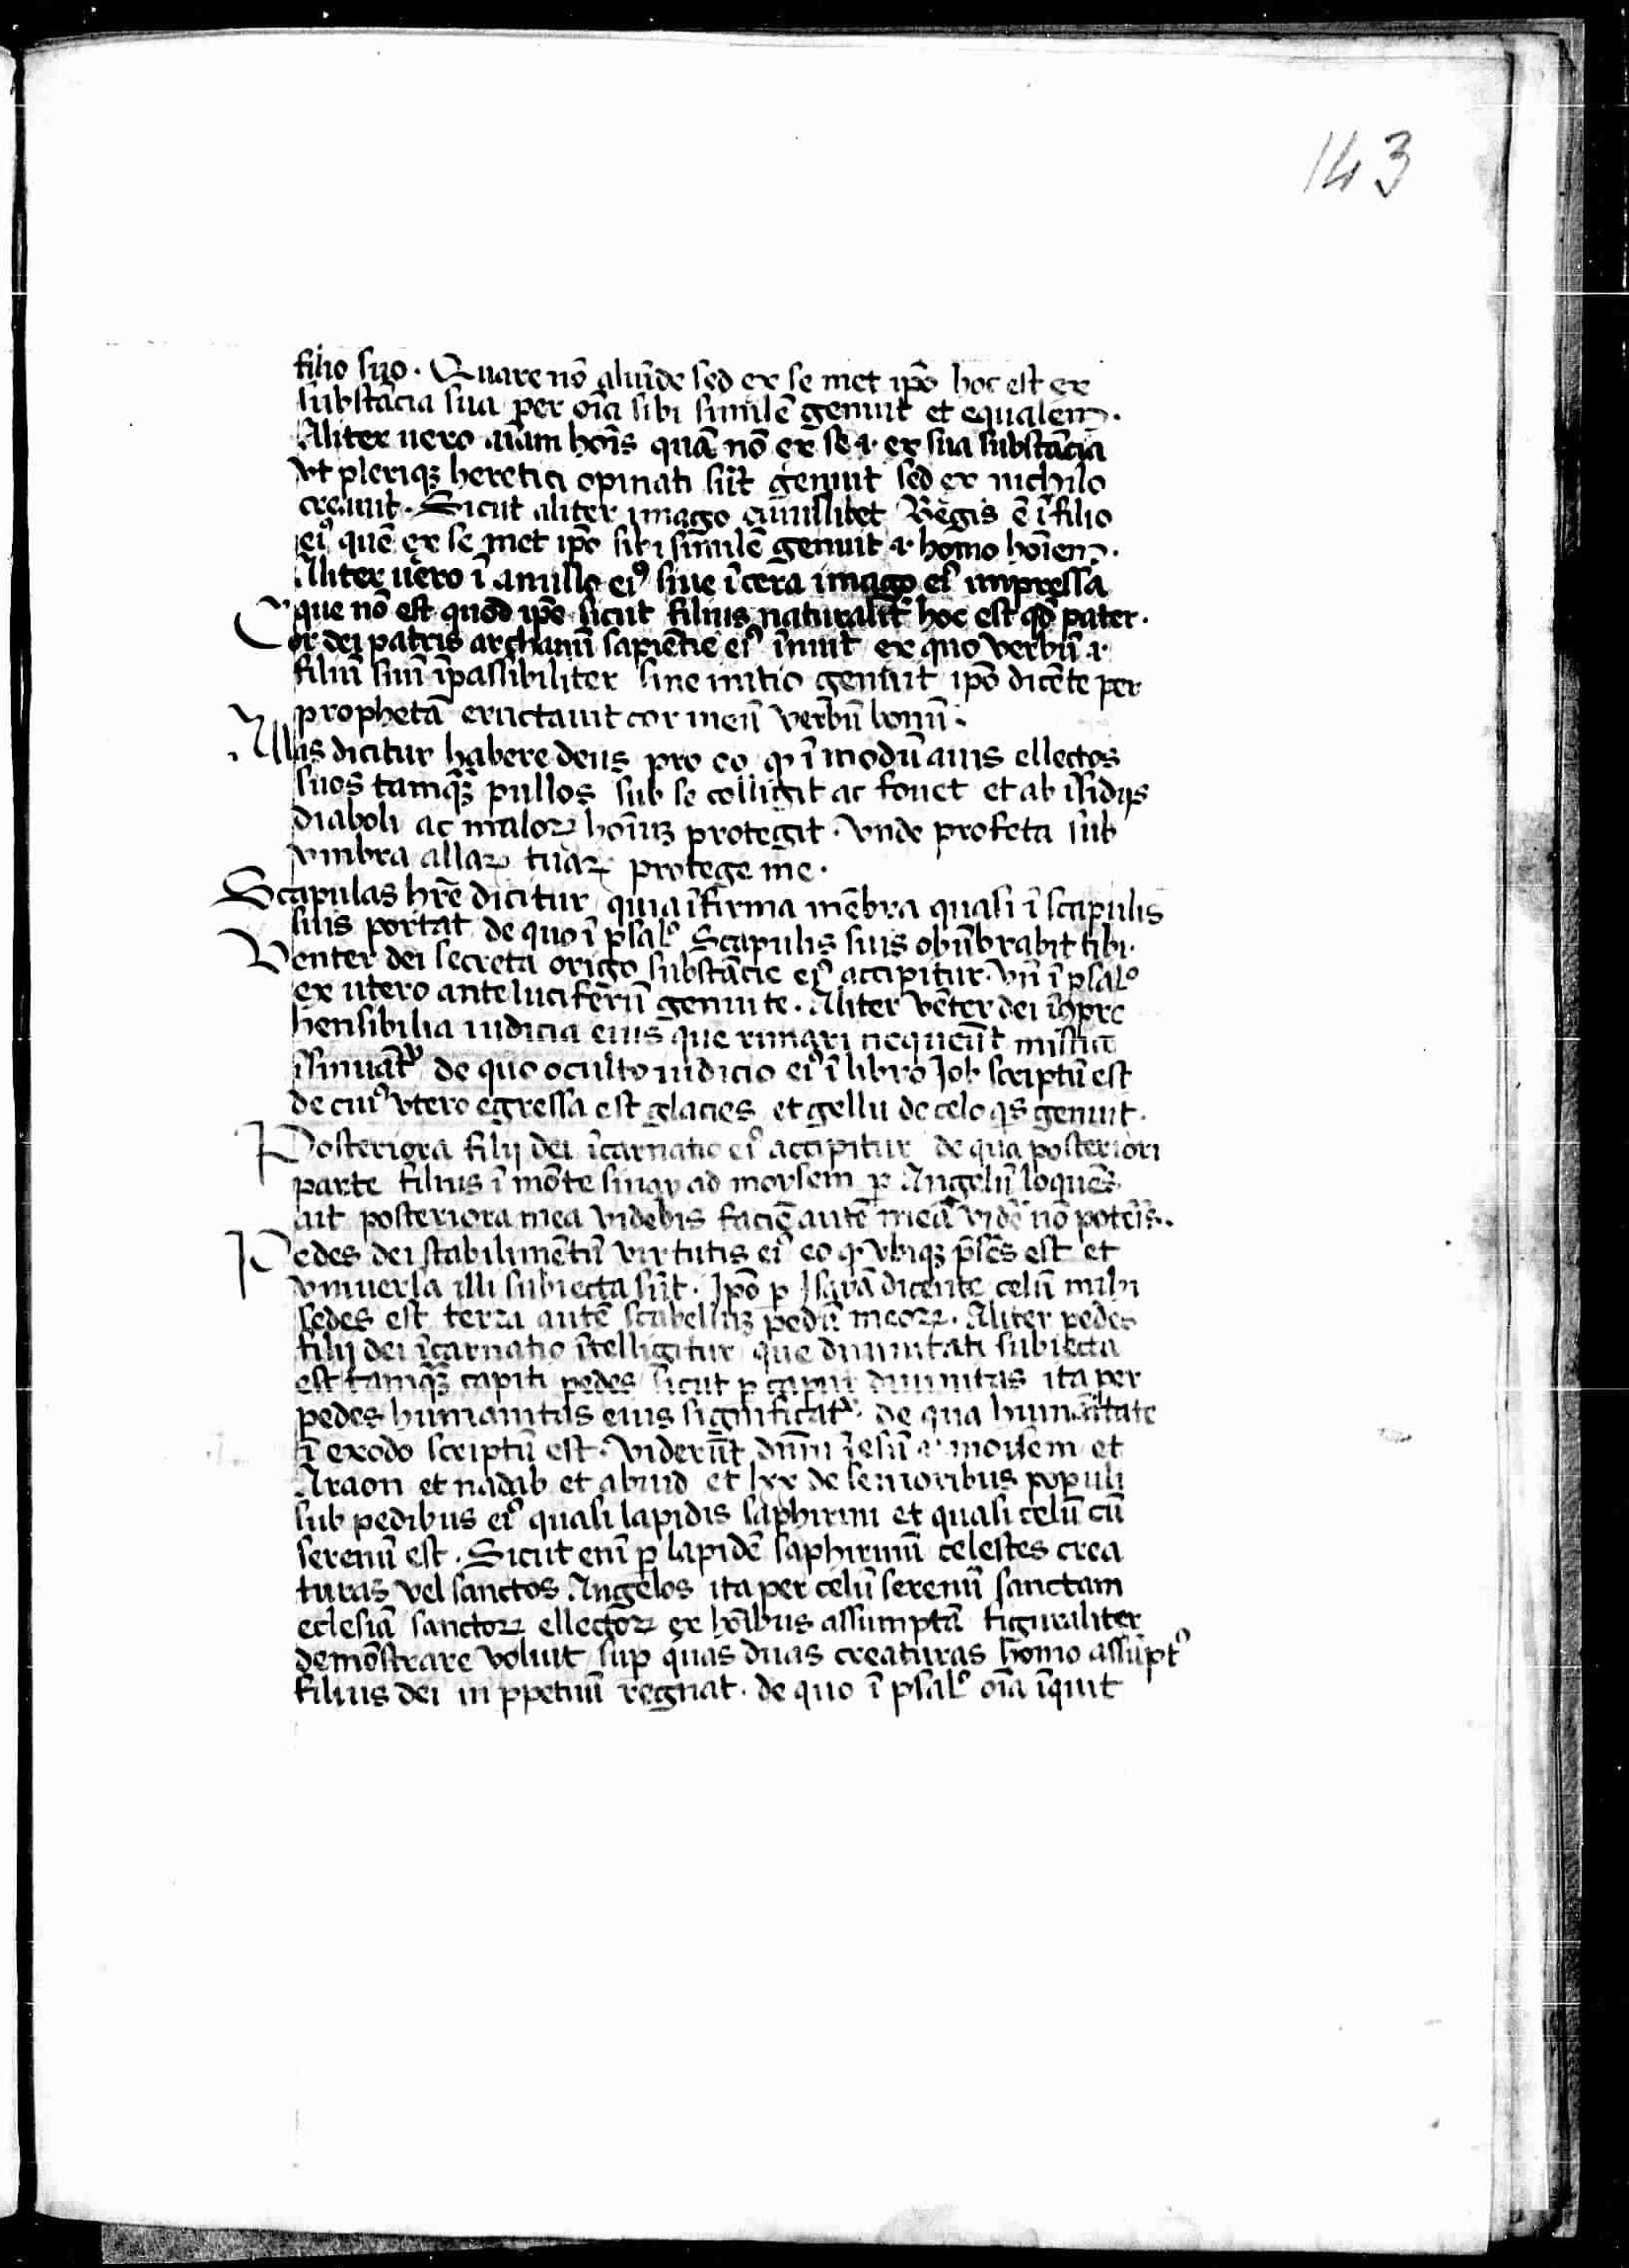 143
filio suo. Quare nō aliūde sed ex se met ip̄o hoc est ex
substācia sua per oīa sibi similē genuit et equalem.
Aliter uero aīam hoīs quā nō ex se ⁊ ex sua substācia
vt pleriqꝫ heretici opinati sūt genuit sed ex nichilo
creauit. Sicut aliter imago cuiuslibet Regis ē ī filio
eiꝰ quē ex se met ip̄o sibi similē genuit ⁊ homo hoīem.
Aliter uero ī anullo eiꝰ siue ī cera imago eiꝰ impressa
que nō est quod ip̄e sicut filius naturalit̄ hoc est qd̄ pater.
Cor dei patris archanū sapiētie eiꝰ īnuit ex quo verbū ⁊
filiū suū īpassibiliter sine initio genuit ip̄o dicēte per
prophetā eructauit cor meū verbū bonū.
Allas dicitur habere deus pro eo qꝛ ī modū auis ellectos
suos tamqꝫ pullos sub se colligit ac fouet et ab īsidijs
diaboli ac maloꝝ hoīuꝫ protegit. vnde profeta sub
vmbra allaꝝ tuaꝝ protege me.
Scapulas hr̄e dicitur quia īfirma mēbra quasi ī scapulis
suis portat de quo ī psalº Scapulis suis obūbrabit tibi.
Venter dei secreta origo substācie eiꝰ accipitur. vn̄ ī psalº
ex utero ante luciferū genui te. Aliter vēter dei īꝯpre
hensibilia iudicia eius que rimari nequeūt
īsinuāt̄ de quo oculto iudicio eiꝰ ī libro Job scriptū est
de cuiꝰ vtero egressa est glacies et gellu de celo qˢ genuit.
Posteriora filij dei īcarnatio eiꝰ accipitur de qua posteriori
parte filius ī mōte sinay ad moysem ꝑ Angelū loquēs
ait posteriora mea videbis faciē autē meā videꝰ nō poteris.
Pedes dei stabilimētū virtutis eiꝰ eo qꝛ vbiqꝫ p̄sēs est et
vniuersa illi subiecta sūt. Ip̄o ꝑ Isayā dicente celū mihi
sedes est terra autē scabelluꝫ pedū meoꝝ. Aliter pedes
filij dei īcarnatio ītelligitur que diuinitati subiecta
est tamqꝫ capiti pedes sicut ꝑ caput diuinitas ita per
pedes humanitas eius significat̄. de qua humanitate
ī exodo scriptū est. viderūt dn̄m iesū ⁊ moysem et
Araon et nadab et abiud et lxx de senioribus populi
sub pedibus eiꝰ quasi lapidis saphirini et quasi celū cū
serenū est. Sicut enī ꝑ lapidē saphirinū celestes crea
turas vel sanctos Angelos ita per celū serenū sanctam
eclesiā sanctoꝝ ellectoꝝ ex hoībus assumptā figuraliter
demōstrare voluit suꝑ quas duas creaturas homo assūptꝰ
filius dei in ꝑpetuū regnat. de quo ī psalº oīa īquit